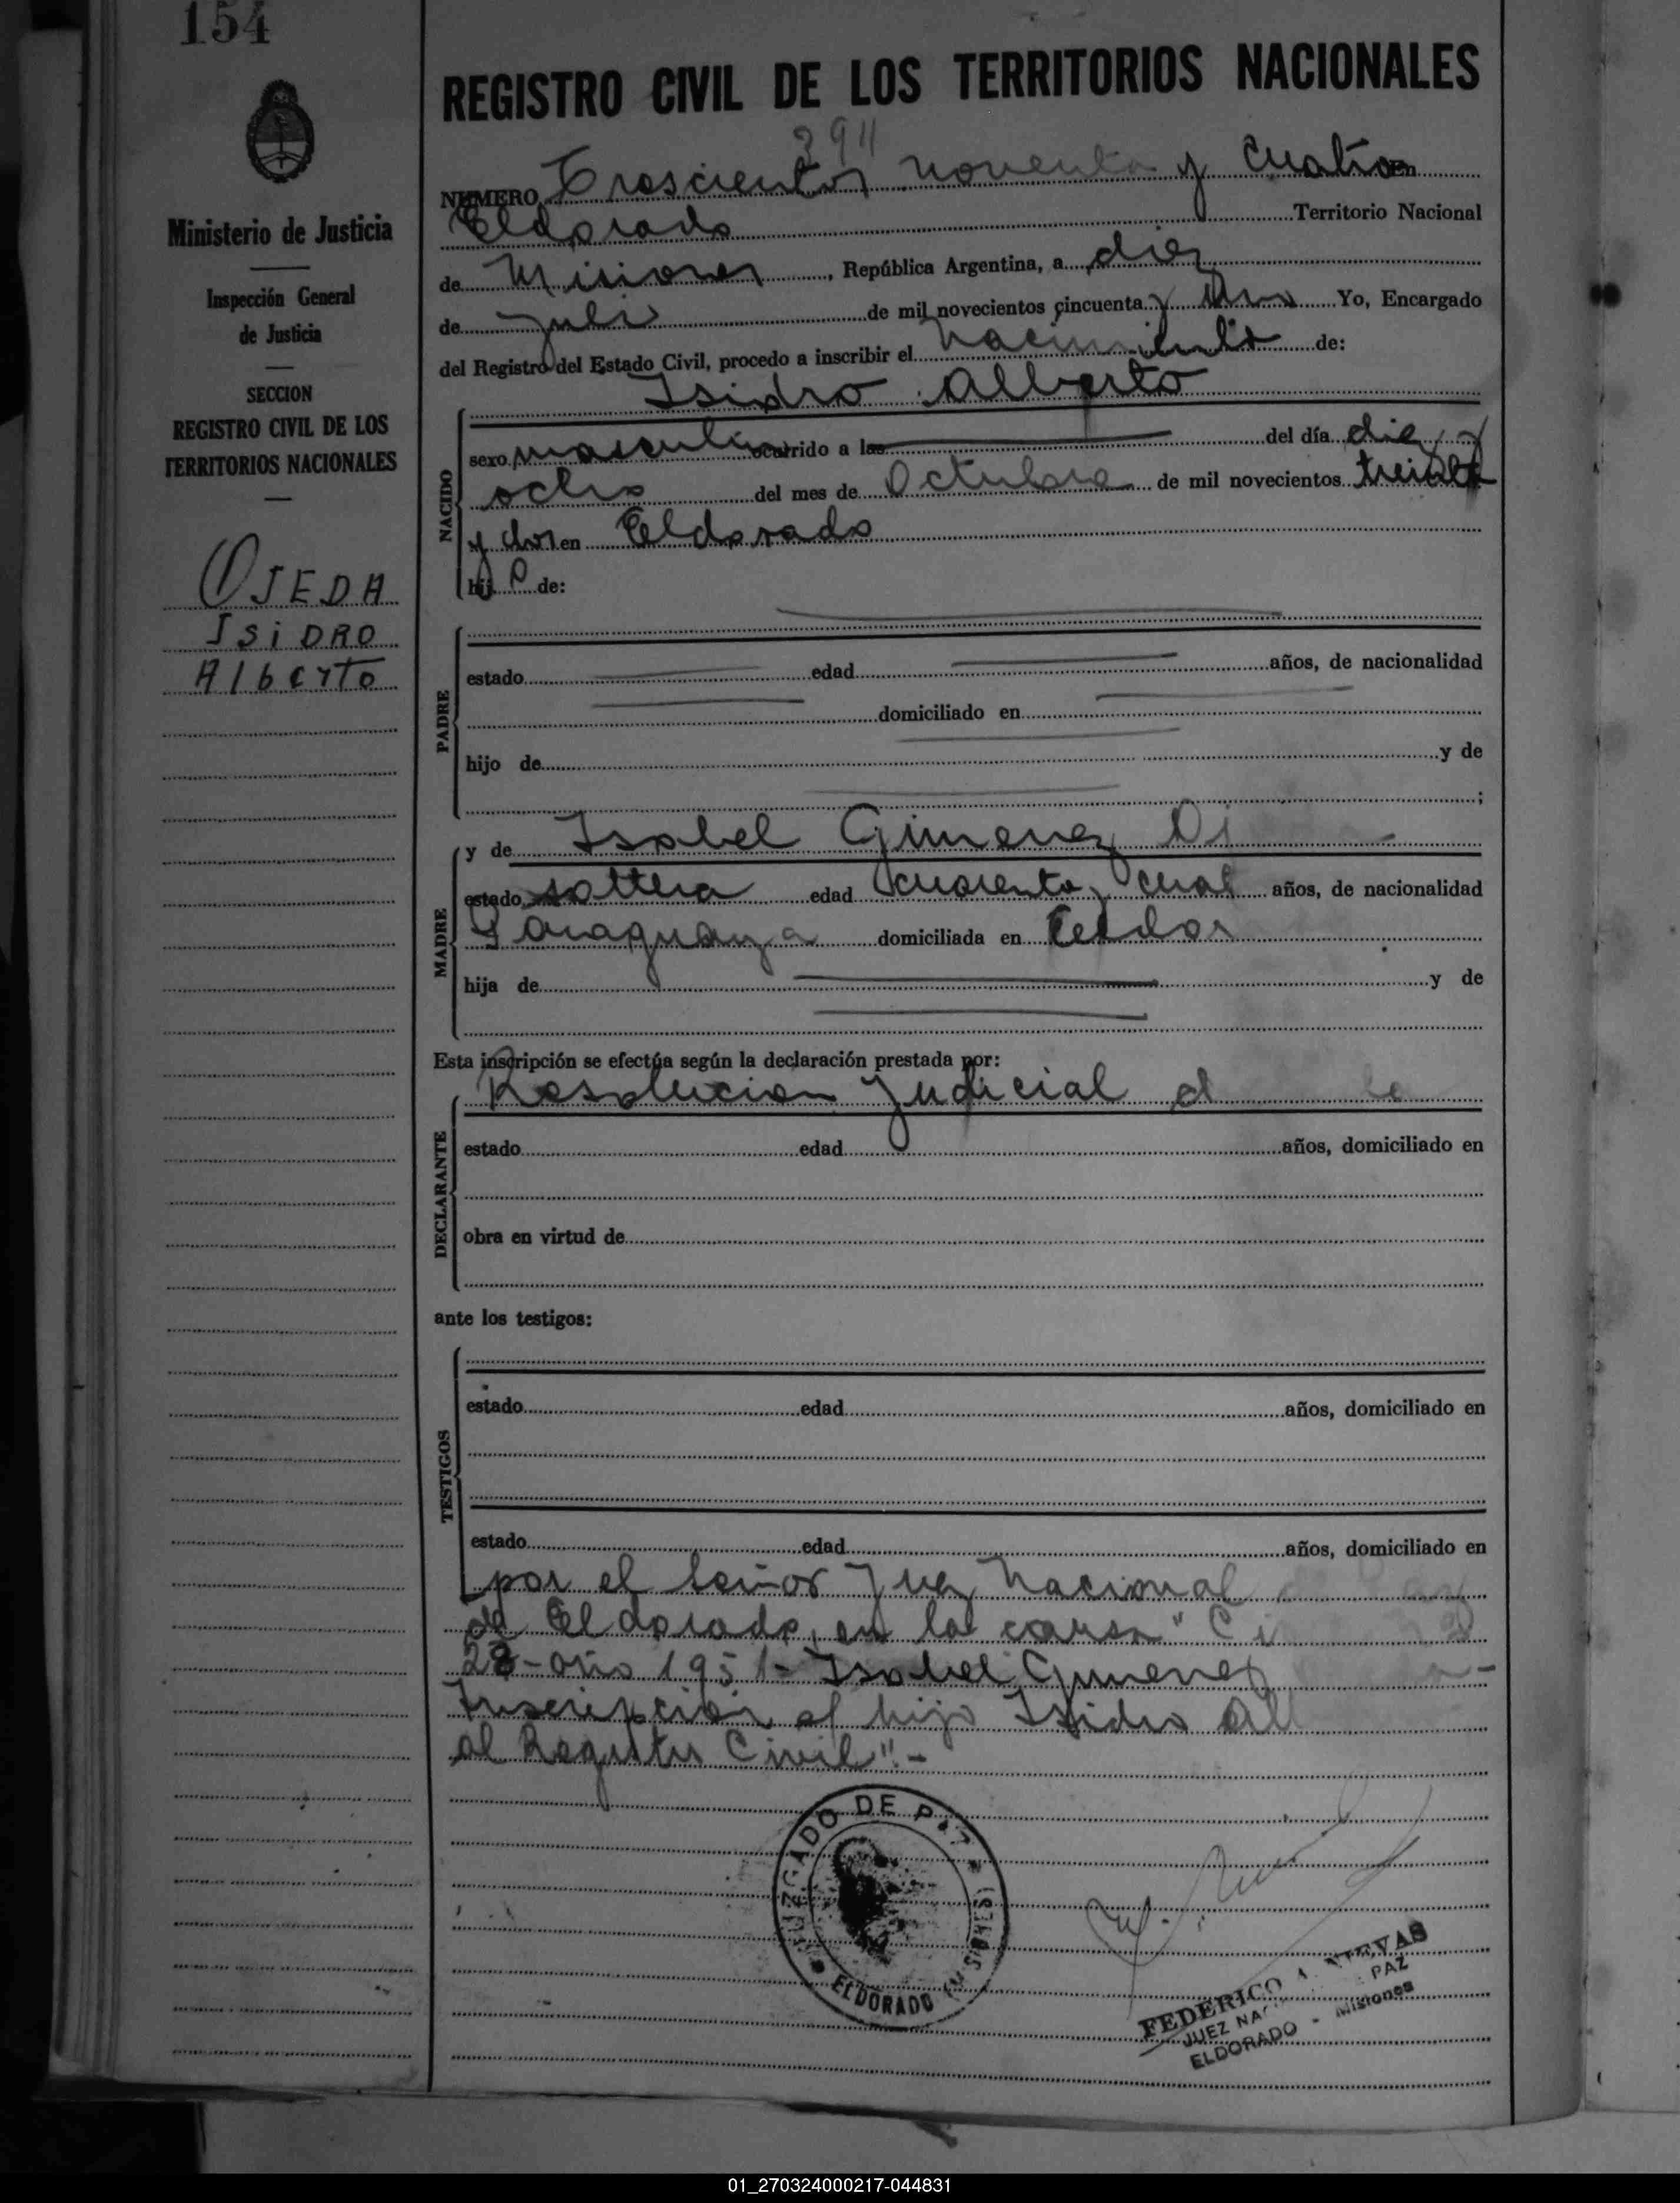 154
REGISTRO CIVIL DE LOS TERRITORIOS NACIONALES
394
NUMERO Trescientos noventa y cuatro en
Eldorado Territorio Nacional
de Misiones, República Argentina, a diez
de julio de mil novecientos cincuenta y uno Yo, Encargado
del Registro del Estado Civil, procedo a inscribir el nacimiento de:
Isidro Alberto
Ministerio de Justicia
Inspección General
de Justicia
SECCION
REGISTRO CIVIL DE LOS
TERRITORIOS NACIONALES
OJEDA
ISIDRO
Alberto
NACIDO
sexo masculino ocurrido a las del día diez y
ocho del mes de Octubre de mil novecientos treinta
y dos en Eldorado
hijo de:
PADRE
estado edad años, de nacionalidad
domiciliado en
hijo de y de
;
MADRE
y de Isabel Gimenez
estado soltera edad cuarenta y años, de nacionalidad
Paraguaya domiciliada en
hija de y de
Esta inscripción se efectúa según la declaración prestada por:
DECLARANTE
Resolucion Judicial
estado edad años, domiciliado en
obra en virtud de
ante los testigos:
TESTIGOS
estado edad años, domiciliado en
estado edad años, domiciliado en
por el señor Juez Nacional
de Eldorado, en la causa "
28-año 1951- Isabel Gimenez
Inscripción el hijo Isidro
al Registro Civil".-
JUZGADO DE PAZ
ELDORADO (MISIONES)
FEDERICO A. NIEVAS
JUEZ PAZ
ELDORADO - Misiones
01_270324000217-044831